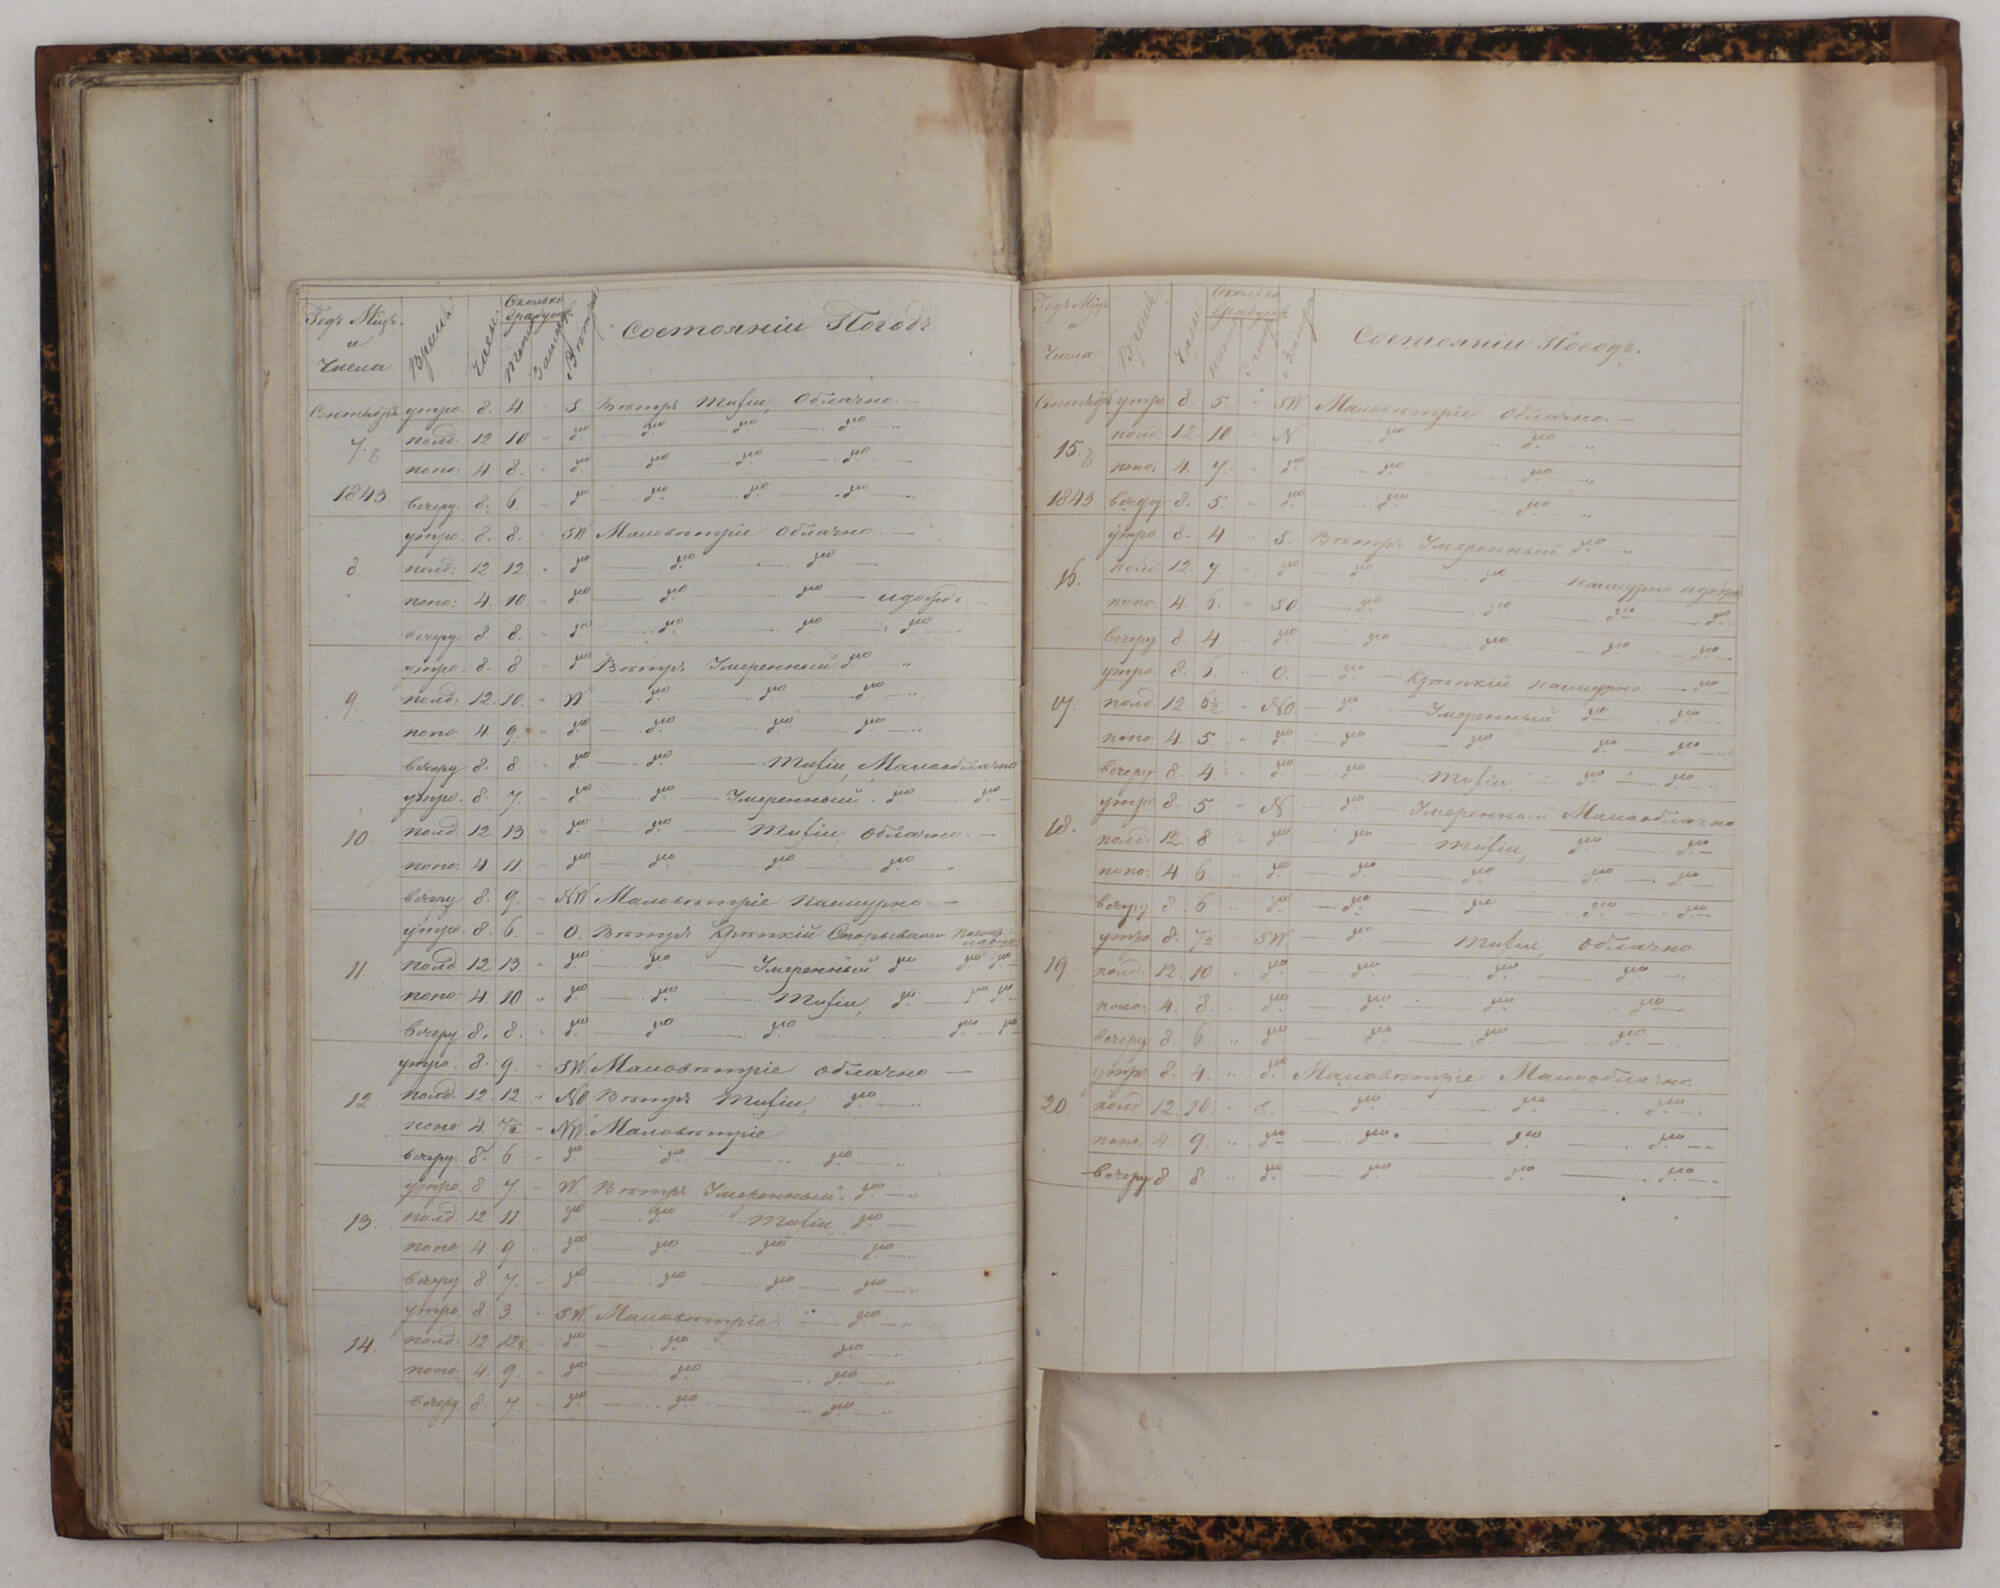 Годъ Мцъ и Числа Время Часы Сколько градусов Тепла Замерз Вѣтръ Состоянiи Погодъ
Сентябрь утро. 8. 4. " S Вѣтръ тихiй, Облачно. —
7. го полд: 12 10 " до до до до "
попо: 4 8. " до до до до "
1843 вечеру. 8. 6. " до до до до "
утро. 8. 8. " SW Маловѣтрiе Облачно —
8. полд: 12 12 " до до до —
попо: 4. 10. " до до до и дождь. —
вечеру. 8. 8. " до до до до —
утро. 8. 8. " до Вѣтръ Умеренный до "
9. полд: 12. 10. " W до до до "
попо 4. 9. " до до до до "
вечеру 8. 8. " до до тихiй, Малооблачно
утро. 8. 7. " до до Умеренный. до до —
10 полд. 12. 13 " до до тихiй, облачно. —
попо: 4 11. " до до до до "
вечеру 8. 9. " NW Маловѣтрiе пасмурно —
утро. 8. 6. " O. Вѣтръ Крѣпкiй Спорывами Пасмур: и дождь
11. полд 12 13 " до до Умеренный до до до
попо. 4. 10 " до до тихiй, до до до
вечеру 8. 8. " до до до до до
утро. 8. 9. " SW. Маловѣтрiе облачно —
12. полд. 12 12 " NO Вѣтръ тихiй, до "
попо 4. 7½ " NW. Маловѣтрiе
вечеру. 8. 6 " до до до "
утро 8 7. " W. Вѣтръ Умеренный. до "
13. полд. 12 11 до до тихiй, до —
попо. 4. 9 " до до до до "
вечеру 8 7. " до до до до "
утро 8. 3. " SW. Маловѣтрiе " до "
14. полд. 12 12½ " до до до "
попо: 4. 9. " до до до "
вечеру 8. 7. " до до до "
Годъ Мцъ и Числа Время Часы Сколько градусов Тепла Замерз Вѣтръ Состоянiи Погодъ.
Сентябрь утро 8. 5. " SW Маловѣтрiе облачно. —
15. го полд: 12. 10 " N до до "
попо: 4. 7. " до до до "
1843. вечеру 8. 5. " до до до "
утро 8. 4 " S. Вѣтръ Умеренный до "
16. полд. 12 7. " до до до пасмурно и дождь
попо. 4. 6. " SO до до до до
вечеру 8 4 " до до до до до
утро 8. 6. " O. до Крѣпкiй пасмурно — до —
17. полд 12 6½ " NO до Умеренный до до
попо 4. 5. " до до до до до
вечеру 8 4. " до до тихiй, до до
утро 8. 5 " N. до Умеренный Малооблачно
18. полд. 12. 8 " до до тихiй, до до —
попо. 4 6. " до до до до до
вечеру 8. 6 " до до до до до
утро 8. 7½ " SW. до тихiй, облачно
19 полд. 12. 10 " до до до до "
попо. 4. 8. " до до до до
вечеру 8 6. " до до до до
утро 8. 4. " до Маловѣтрiе Малооблачно.
20 полд 12. 10. " S. до до до
попо. 4 9. " до до до до
вечеру 8 8. " до до до до